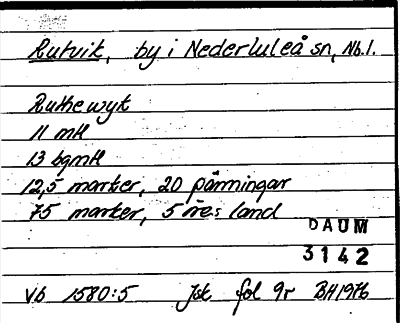 Rutvik, by i Nederluleå sn, Nb.l.
Ruthewyk
11 mtl
13 bgmtl
12,5 marker, 20 pänningar
75 marker, 5 öres land
DAUM
3142
Vb 1580:5 Jsk fol 9r BH1976